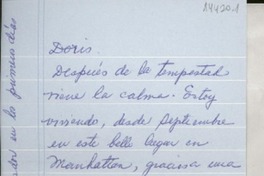 14420.1
Doris.
Después de la tempestad
viene la calma. Estoy
viviendo, desde septiembre
en este bello lugar en
Manhattan, gracias a una
en los primeros días